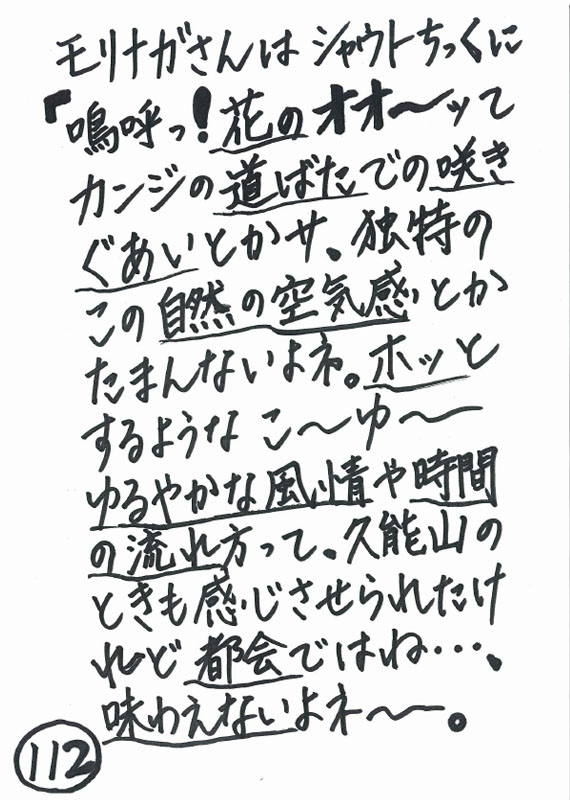 モリナガさんは シャウトちっくに
「嗚呼っ!花のオオ〜ッて
カンジの道ばたでの咲き
ぐあいとかサ、独特の
この自然の空気感とか
たまんないよネ。ホッと
するような こ〜ゆ〜
ゆるやかな風情や時間
の流れ方って、久能山の
ときも感じさせられたけ
れど都会ではね…、
味わえないよネ〜。
112